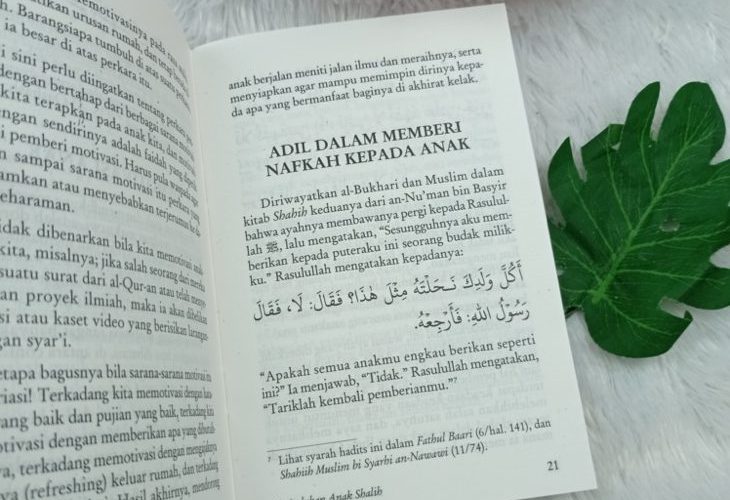 motivasinya pada anak
urusan rumah, dan tetap
Barangsiapa tumbuh di atas suatu
ia besar di atas perkara itu.
sini perlu diingatkan tentang perkara
dengan bertahap dari berbagai sarana
kita terapkan pada anak kita, dan
dengan sendirinya adalah faidah yang
pemberi motivasi. Harus pula waspada agar
sampai sarana motivasi itu perkara yang
atau menyebabkan terjerumus ke
keharaman.
dak dibenarkan bila kita memotivasi anak
kita, misalnya; jika salah seorang dari mereka
suatu surat dari al-Qur-an atau telah
an proyek ilmiah, maka ia akan dibelikan
si atau kaset video yang berisikan
gan syar'i.
etapa bagusnya bila sarana-sarana motivasi
riasi! Terkadang kita memotivasi dengan
yang baik dan pujian yang baik, terkadang
otivasi dengan memberikan apa yang
ya, terkadang memotivasi dengan mengajaknya
(refreshing) keluar rumah, dan terkadang
Hasil akhirnya, mendorong
anak berjalan meniti jalan ilmu dan meraihnya, serta
menyiapkan agar mampu memimpin dirinya kepa-
da apa yang bermanfaat baginya di akhirat kelak.
ADIL DALAM MEMBERI
NAFKAH KEPADA ANAK
Diriwayatkan al-Bukhari dan Muslim dalam
kitab Shahih keduanya dari an-Nu'man bin Basyir
bahwa ayahnya membawanya pergi kepada Rasulul-
lah ﷺ, lalu mengatakan, "Sesungguhnya aku mem-
berikan kepada puteraku ini seorang budak milik-
ku." Rasulullah mengatakan kepadanya:
أَكُلَّ وَلَدِكَ نَحَلْتَهُ مِثْلَ هٰذَا؟ فَقَالَ: لَا، فَقَالَ
رَسُوْلُ اللهِ: فَأَرْجِعْهُ.
"Apakah semua anakmu engkau berikan seperti
ini?" Ia menjawab, "Tidak." Rasulullah mengatakan,
"Tariklah kembali pemberianmu."⁷
⁷ Lihat syarah hadits ini dalam Fathul Baari (6/hal. 141), dan
Shahiih Muslim bi Syarhi an-Nawawi (11/74).
21
Anak Shalih